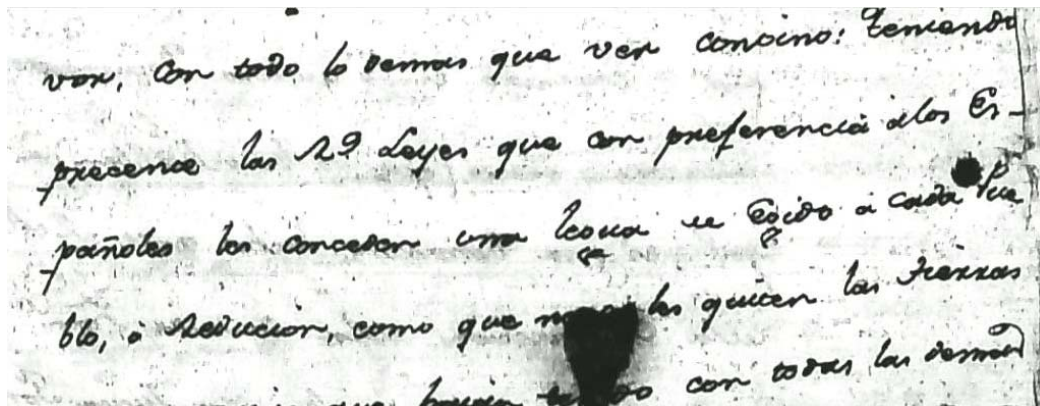 vor, con todo lo demas que ver convino: teniendo
precente las Rs Leyes que con preferencia alos Es-
pañoles les conceden una legua de Egido á cada Pue
blo, ó Reducion, como que les quiten las tierras
que havian con todas las demas